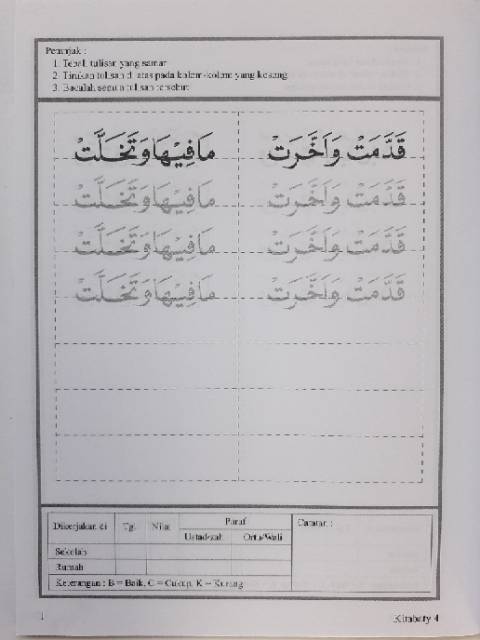 Petunjuk :
1. Tebali tulisan yang samar
2. Tirukan tulisan di atas pada kolom-kolom yang kosong
3. Bacalah semua tulisan tersebut
قَدَّمَتْ وَاَخَّرَتْ مَافِيْهَاوَتَخَلَّتْ
قَدَّمَتْ وَاَخَّرَتْ مَافِيْهَاوَتَخَلَّتْ
قَدَّمَتْ وَاَخَّرَتْ مَافِيْهَاوَتَخَلَّتْ
قَدَّمَتْ وَاَخَّرَتْ مَافِيْهَاوَتَخَلَّتْ
Dikerjakan di Tgl Nilai Paraf Catatan :
Ustadzah Ortu/Wali
Sekolah
Rumah
Keterangan : B = Baik, C = Cukup, K = Kurang
1 Kitabaty 4